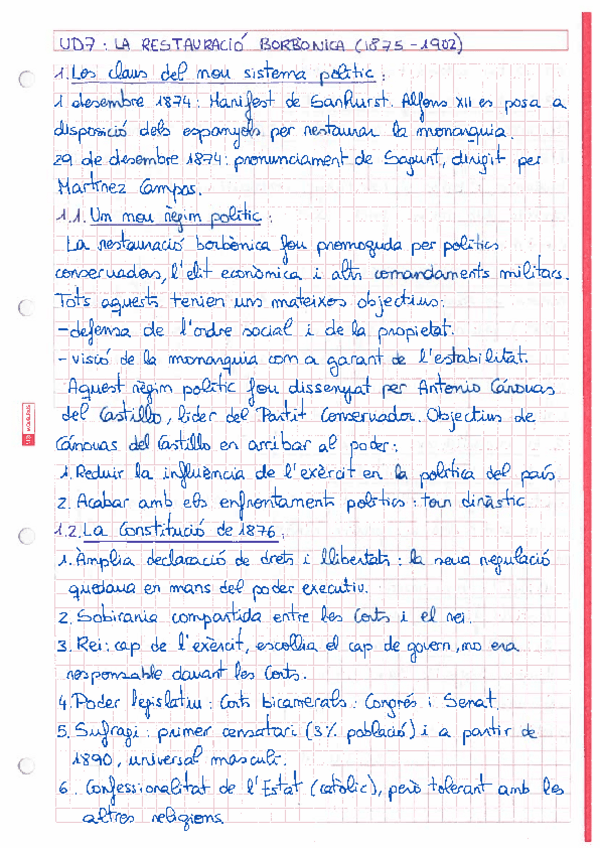 UD7: LA RESTAURACIÓ BORBONICA (1875-1902)
1. Les claus del nou sistema polític:
1 desembre 1874: Manifest de Sanhurst. Alfons XII es posa a
disposició dels espanyols per restaurar la monarquia.
29 de desembre 1874: pronunciament de Sagunt, dirigit per
Martínez Campos.
1.1. Un nou règim polític:
La restauració borbònica fou promoguda per polítics
conservadors, l'elit econòmica i alts comandaments militars.
Tots aquests tenien uns mateixos objectius:
-defensa de l'ordre social i de la propietat.
-visió de la monarquia com a garant de l'estabilitat.
Aquest règim polític fou dissenyat per Antonio Cánovas
del Castillo, líder del Partit Conservador. Objectius de
Cánovas del Castillo en arribar al poder:
1. Reduir la influència de l'exèrcit en la política del país
2. Acabar amb els enfrontaments polítics: torn dinàstic
1.2. La Constitució de 1876:
1. Àmplia declaració de drets i llibertats: la seua regulació
quedava en mans del poder executiu.
2. Sobirania compartida entre les Corts i el rei.
3. Rei: cap de l'exèrcit, escollia el cap de govern, no era
responsable davant les Corts.
4. Poder legislatiu: Corts bicamerals: Congrés i Senat.
5. Sufragi: primer censatari (3% població) i a partir de
1890, universal masculí.
6. Confessionalitat de l'Estat (catòlic), però tolerant amb les
altres religions.